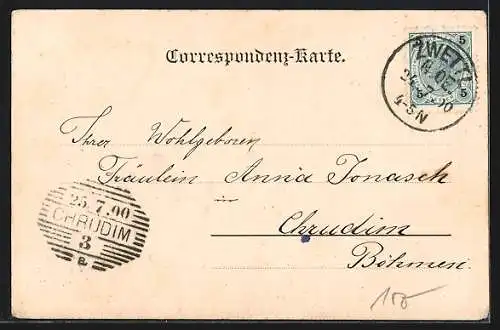 Correspondenz-Karte.
5
ZWETTL
N.OE.
24 7 00
4-5N
5
Ihrer Wohlgeboren
Fräulein Anna Jonasch
in
Chrudim
Böhmen.
25.7.00
CHRUDIM
3
a.
150